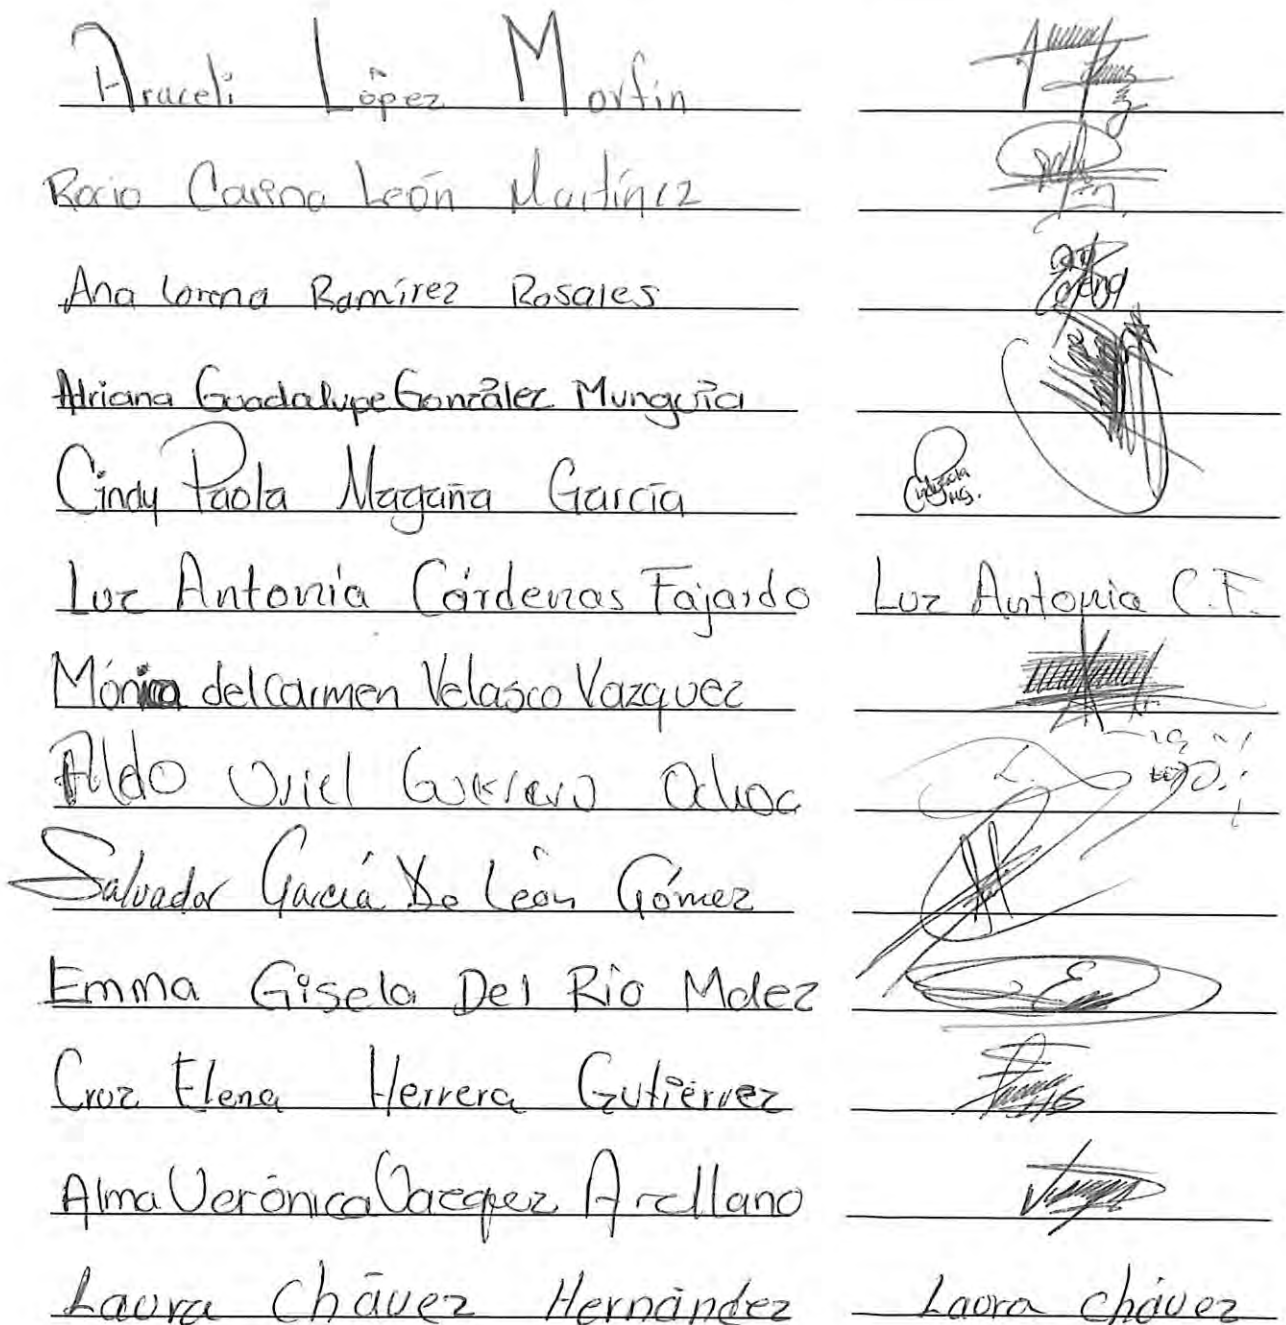 Araceli López Morfín
Rocio Carina León Martínez
Ana Lorena Ramírez Rosales
Adriana Guadalupe González Munguía
Cindy Paola Magaña García
Luz Antonia Cárdenas Fajardo Luz Antonia C.F.
Mónica del Carmen Velasco Vazquez
Aldo Uriel Guerrero Ochoa
Salvador García De León Gómez
Emma Gisela Del Río Mdez
Cruz Elena Herrera Gutiérrez
Alma Verónica Vazquez Arellano
Laura Chávez Hernández Laura Chávez